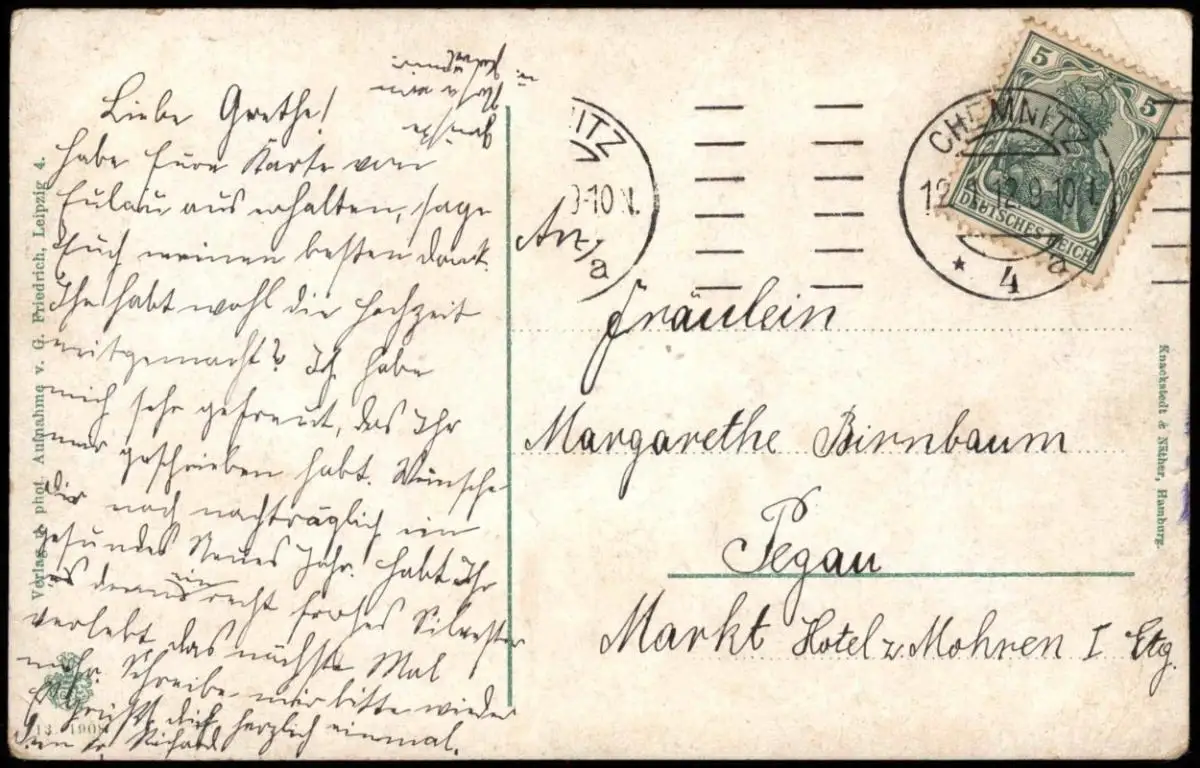 Liebe Grethe!
habe Eure Karte von
Eulau aus erhalten, sage
Euch meinen besten Dank.
Ihr habt wohl die Hochzeit
mitgemacht? Ich habe
mich sehr gefreut, das Ihr
mir geschrieben habt. Wünsche
Dir noch nachträglich ein
gesundes Neues Jahr. Habt Ihr
ein
es denn recht frohes Silvester
verlebt das nächste Mal
mehr Schreibe mir bitte wieder
einmal.
Es Grüßt Dich herzlich
Dein Richard
An
Fräulein
Margarethe Birnbaum
Pegau
Markt Hotel z Mohren I Etg.
CHEMNITZ
12. 12. 9-10 N.
* 4 a
NITZ
9-10 N.
a
5 5
DEUTSCHES REICH
Verlag u. phot. Aufnahme v. G. Friedrich, Leipzig 4.
Knackstedt & Näther, Hamburg.
1908